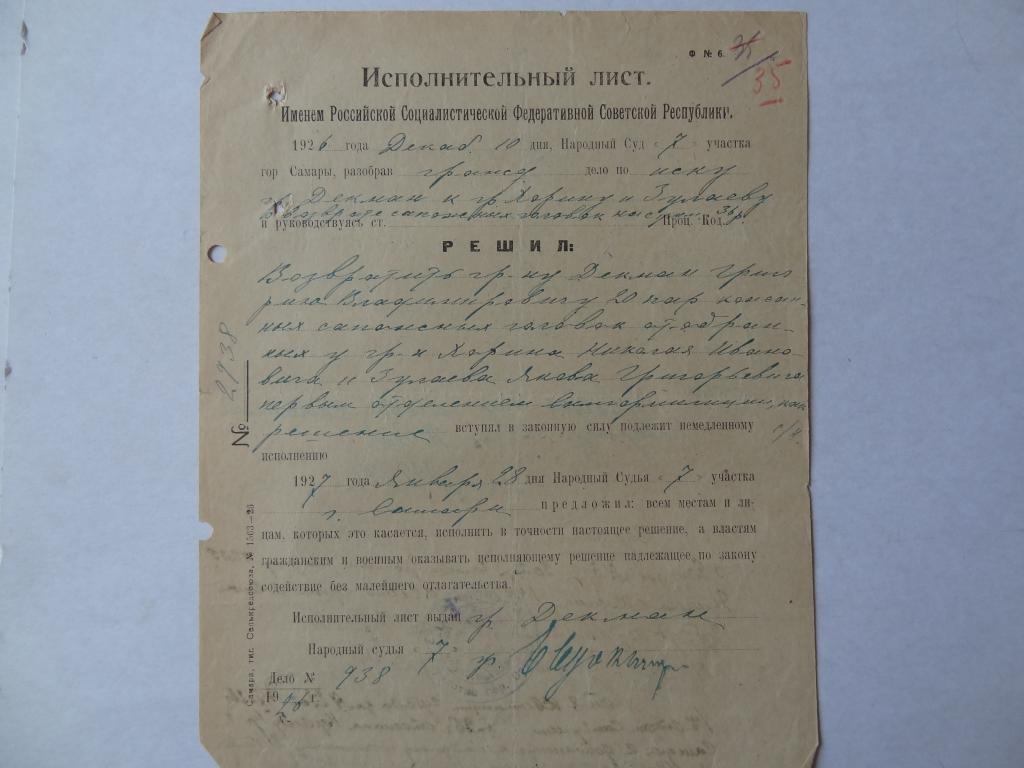 Ф № 6.
35
Исполнительный лист.
Именем Российской Социалистической Федеративной Советской Республики.
1926 года Декаб. 10 дня, Народный Суд 7 участка
гор Самары, разобрав гражд дело по иску
гр. Декман к гр Хорину и Зулаеву
о возврате сапожных головок на
и руководствуясь ст. Проц. Код.
РЕШИЛ:
Возвратить гр-ну Декман Григо
рию Владимировичу 20 пар
ных сапожных головок отобран-
ных у гр-н Хорина Николая Ивано-
вича и Зулаева Якова Григорьевича
первым отделением как
решение вступил в законную силу подлежит немедленному с/и.
исполнению
1927 года Января 28 дня Народный Судья 7 участка
г. Самары предложил: всем местам и ли-
цам, которых это касается, исполнить в точности настоящее решение, а властям
гражданским и военным оказывать исполняющему решение надлежащее по закону
содействие без малейшего отлагательства.
Исполнительный лист выдан гр. Декман
Народный судья 7 р.
Дело № 938
1926 г.
№ 2938
Самара, тип. Селькредсоюза, № 1563—26